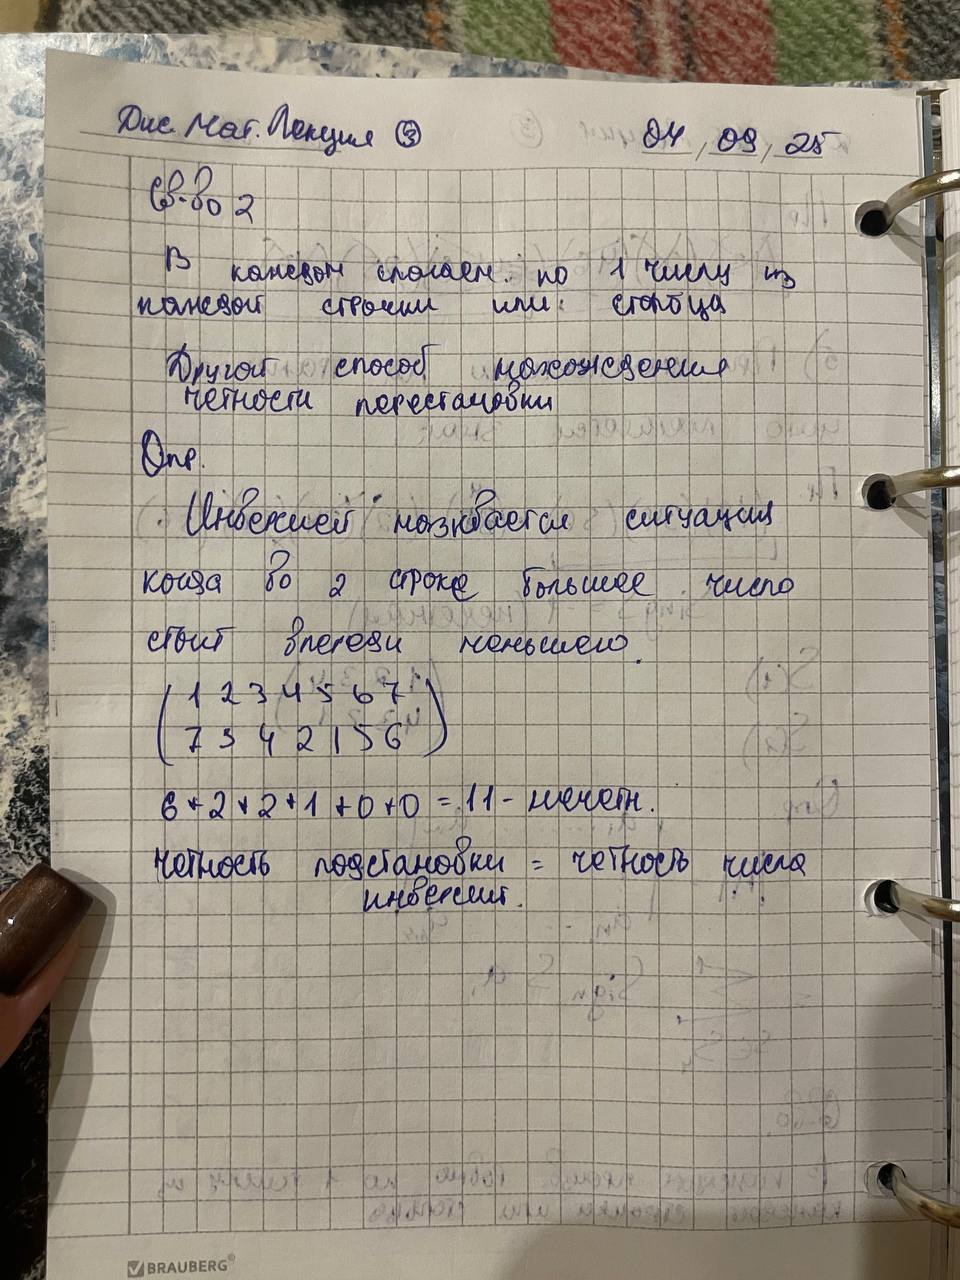 Дис. Мат. Лекция ③ 04, 09, 25
Св-во 2
В каждом слогаем. по 1 числу из
каждой строчки или столбца
Другой способ нахождения
четности перестановки
Опр.
Инверсией называется ситуация
когда во 2 строке большее число
стоит впереди меньшего.
( 1 2 3 4 5 6 7 )
( 7 3 4 2 1 5 6 )
6+2+2+1+0+0 = 11 - нечетн.
четность подстановки = четность числа
инверсий.
BRAUBERG®